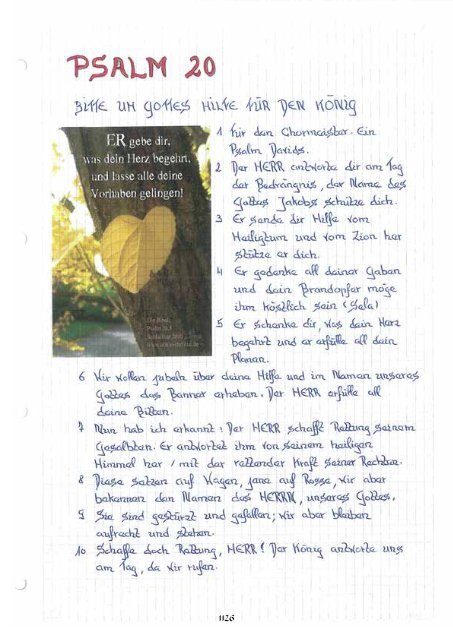 PSALM 20
BITTE UM GOTTES HILFE FÜR DEN KÖNIG
ER gebe dir,
was dein Herz begehrt,
und lasse alle deine
Vorhaben gelingen!
Die Bibel,
Psalm 20,5
1 Für den Chormeister. Ein
Psalm Davids.
2 Der HERR antworte dir am Tag
der Bedrängnis, der Name des
Gottes Jakobs schütze dich.
3 Er sende dir Hilfe vom
Heiligtum und vom Zion her
stütze er dich.
4 Er gedenke all deiner Gaben
und dein Brandopfer möge
ihm köstlich sein (Sela)
5 Er schenke dir, was dein Herz
begehrt und er erfülle all dein
Planen.
6 Wir wollen jubeln über deine Hilfe und im Namen unseres
Gottes das Banner erheben. Der HERR erfülle all
deine Bitten.
7 Nun hab ich erkannt: Der HERR schafft Rettung seinem
Gesalbten. Er antwortet ihm von seinem heiligen
Himmel her / mit der rettender Kraft seiner Rechten.
8 Diese setzen auf Wagen, jene auf Rosse, wir aber
bekennen den Namen des HERRN, unseres Gottes.
9 Sie sind gestürzt und gefallen; wir aber bleiben
aufrecht und stehen.
10 Schaffe doch Rettung, HERR! Der König antworte uns
am Tag, da wir rufen.
1126